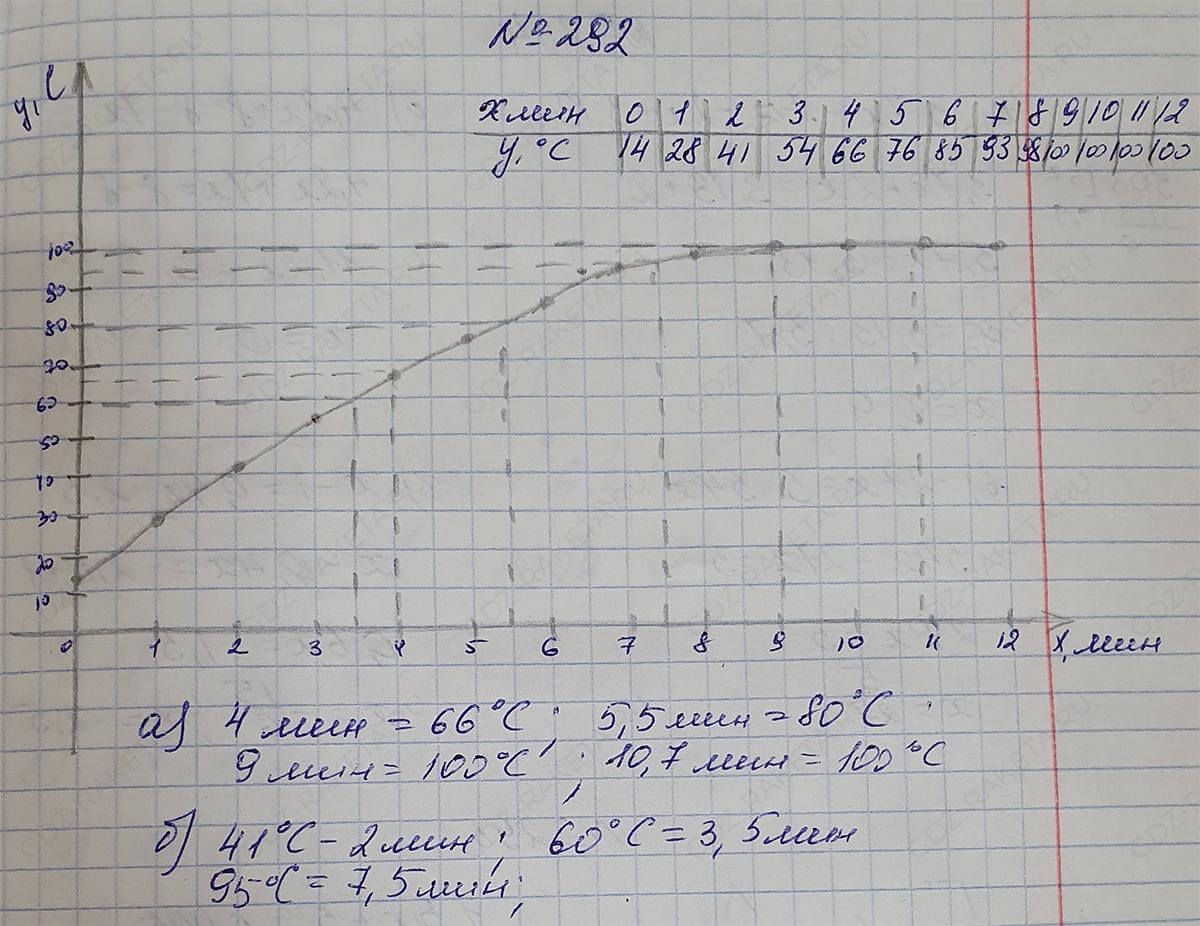 № 292
y, C
x мин 0 1 2 3 4 5 6 7 8 9 10 11 12
y, °C 14 28 41 54 66 76 85 93 98 100 100 100 100
100
90
80
70
60
50
40
30
20
10
0 1 2 3 4 5 6 7 8 9 10 11 12 x, мин
а) 4 мин = 66°C ; 5,5 мин = 80°C ;
9 мин = 100°C ; 10,7 мин = 100°C
б) 41°C - 2 мин ; 60°C = 3,5 мин
95°C = 7,5 мин ;